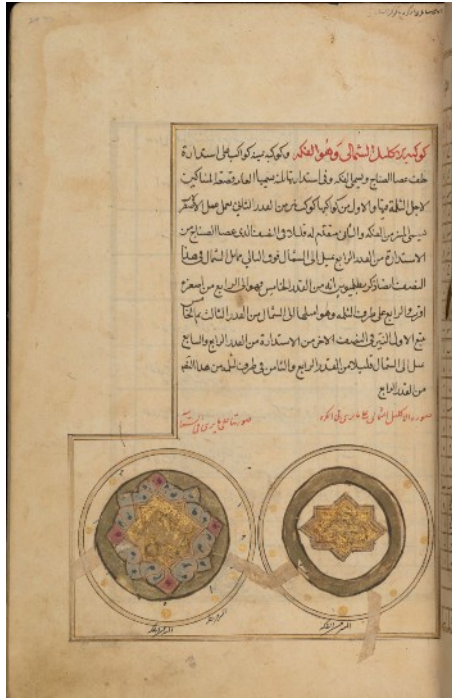 كوكبة الاكليل الشمالى وهو الفكه وكواكبه ثمنية كواكب على استدارة
خلف عصا الصياح ويسمى الفكه وفى استدارتها ثلمة تسميها العامة قصعة المساكين
لاجل الثلمة فيها والاول من كواكبها كوكب نير من القدر الثانى
ويسمى المنير من الفكه والثانى متقدم له قليلا فى النصف الذى عصا الصياح من
الاستدارة من القدر الرابع يميل الى الشمال فوق الثانى مما يلى الشمال فى هذا
النصف ايضا ذكر بطلميوس انه من القدر الخامس وهو الى الرابع من اصغره
اقرب والرابع على طرف الثلمه وهو اميلها الى الشمال من القدر الثالث
يتبع الاول النير فى النصف الاخر من الاستدارة من القدر الرابع والسابع
يميل الى الشمال قليلا من القدر الرابع والثامن فى طرف الثلمه من هذا القسم
من القدر الرابع
صورة الاكليل الشمالى على ما يرى فى الكره
صورتها على ما يرى فى السماء
المنير من الفكه